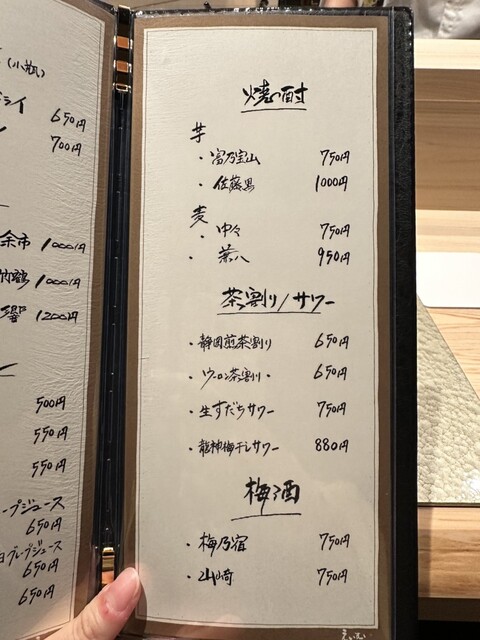 (小瓶)
ライ 650円
700円
余市 1000円
竹鶴 1000円
響 1200円
500円
550円
550円
プジュース
650円
グレープジュース
650円
650円
焼酎
芋
・富乃宝山 750円
・佐藤黒 1000円
麦
・中々 750円
・兼八 950円
茶割り/サワー
・静岡煎茶割り 650円
・ウーロン茶割り・ 650円
・生すだちサワー 750円
・龍神梅干しサワー 880円
梅酒
・梅乃宿 750円
・山崎 750円